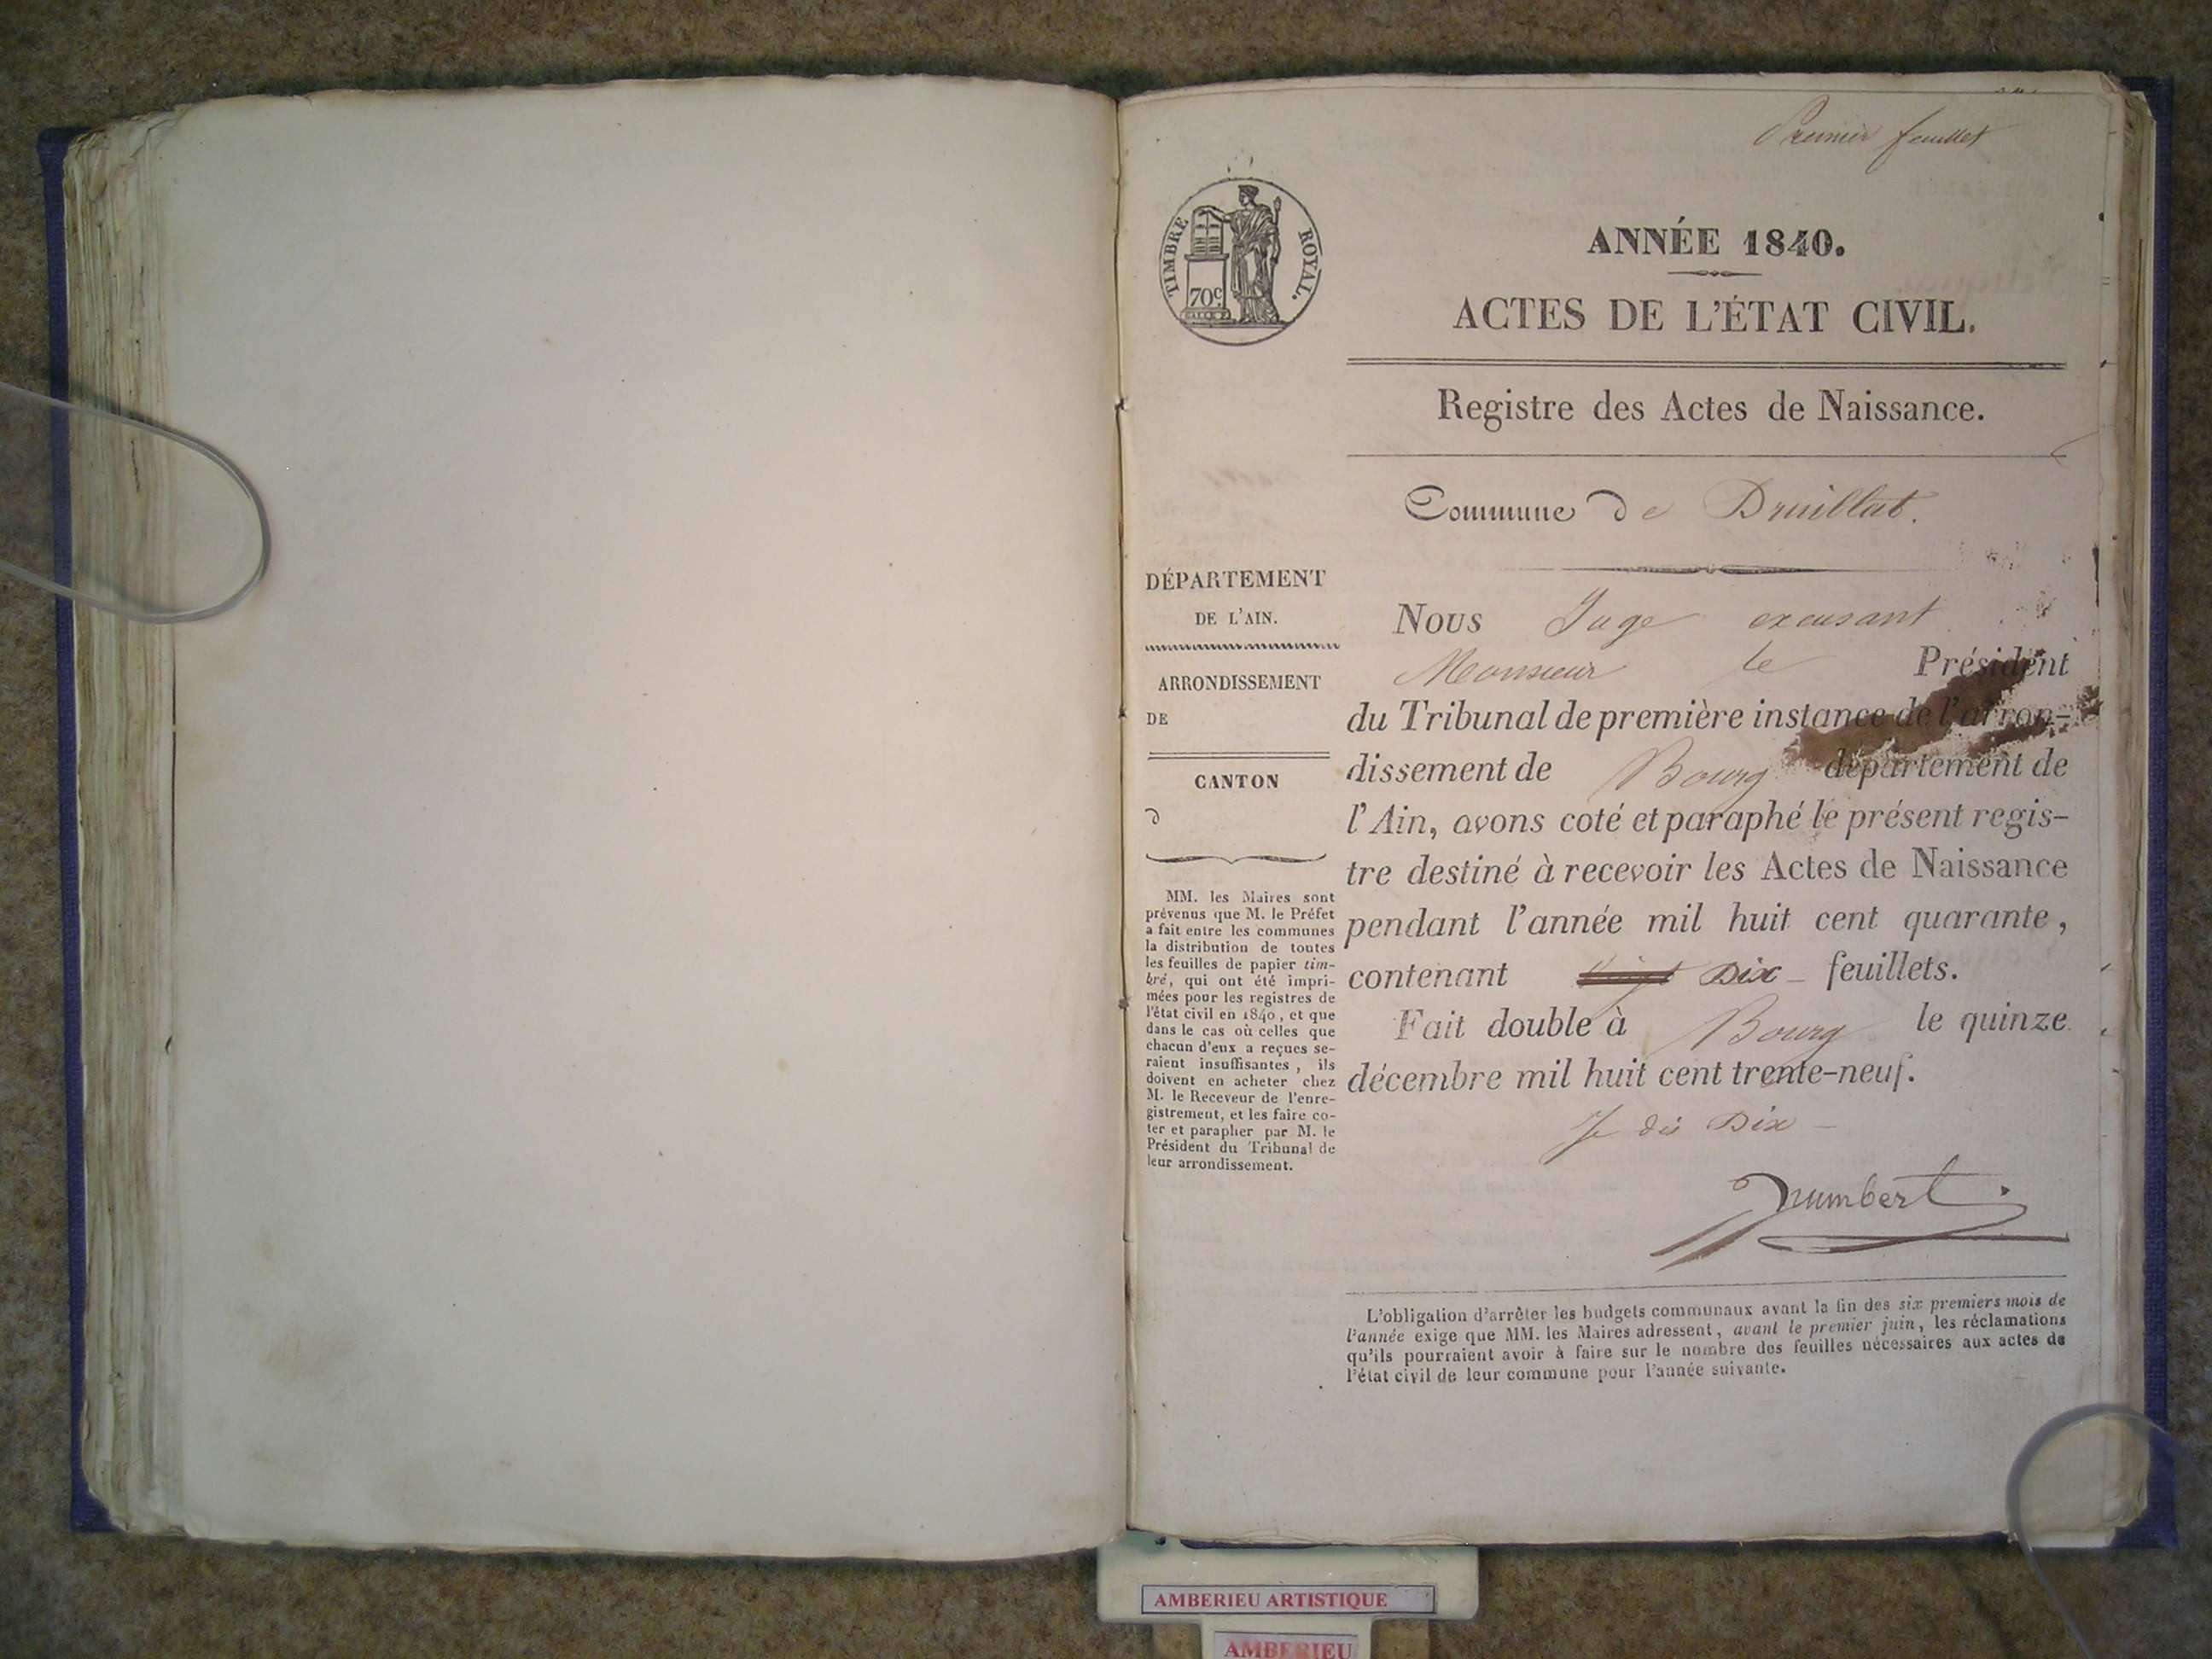 Premier feuillet
TIMBRE ROYAL.
70c
ANNÉE 1840.
ACTES DE L'ÉTAT CIVIL.
Registre des Actes de Naissance.
Commune de Druillat.
DÉPARTEMENT
DE L'AIN.
ARRONDISSEMENT
DE
CANTON
d
MM. les Maires sont
prévenus que M. le Préfet
a fait entre les communes
la distribution de toutes
les feuilles de papier tim-
bré, qui ont été impri-
mées pour les registres de
l'état civil en 1840, et que
dans le cas où celles que
chacun d'eux a reçues se-
raient insuffisantes, ils
doivent en acheter chez
M. le Receveur de l'enre-
gistrement, et les faire co-
ter et parapher par M. le
Président du Tribunal de
leur arrondissement.
Nous Juge excusant
Monsieur le Président
du Tribunal de première instance de l'arron-
dissement de Bourg département de
l'Ain, avons coté et paraphé le présent regis-
tre destiné à recevoir les Actes de Naissance
pendant l'année mil huit cent quarante,
contenant Dix feuillets.
Fait double à Bourg le quinze
décembre mil huit cent trente-neuf.
Je dis Dix
L'obligation d'arrêter les budgets communaux avant la fin des six premiers mois de
l'année exige que MM. les Maires adressent, avant le premier juin, les réclamations
qu'ils pourraient avoir à faire sur le nombre des feuilles nécessaires aux actes de
l'état civil de leur commune pour l'année suivante.
AMBERIEU ARTISTIQUE
AMBERIEU